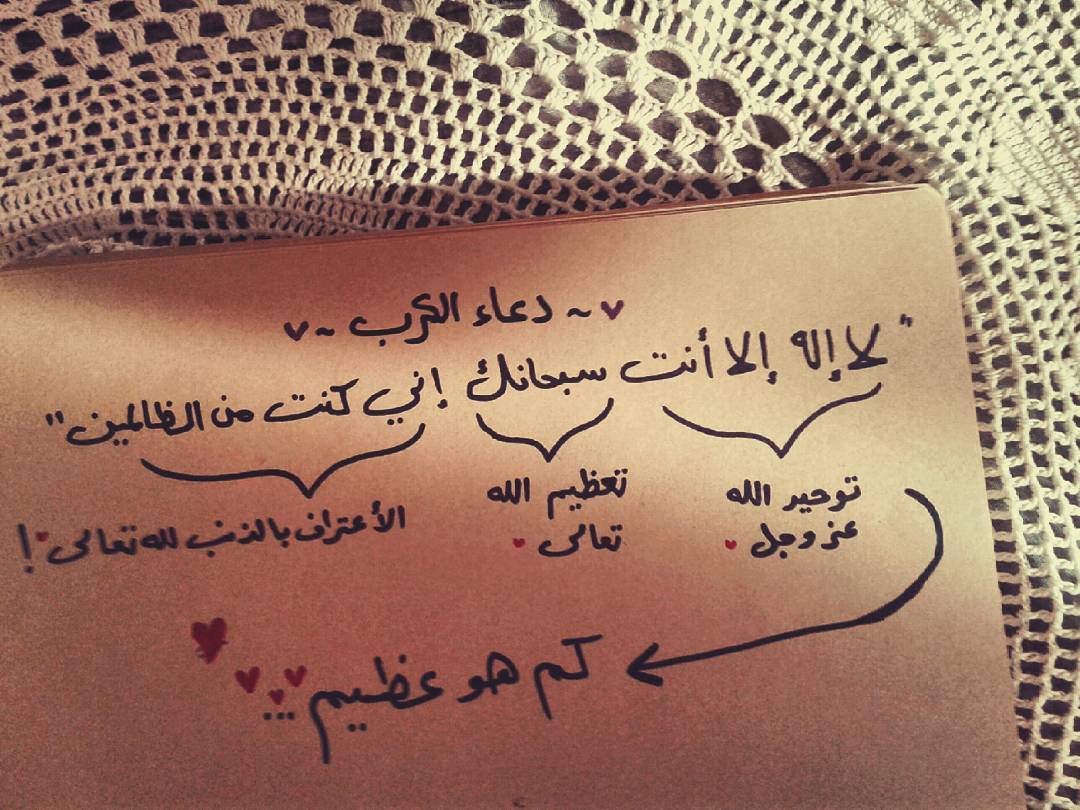 ♥ ~ دعاء الكرب ~ ♥
"لا إله إلا أنت سبحانك إني كنت من الظالمين"
توحيد الله
عز وجل ♥
تعظيم الله
تعالى ♥
الأعتراف بالذنب لله تعالى ♥!
كم هو عظيم... ♥♥♥♥